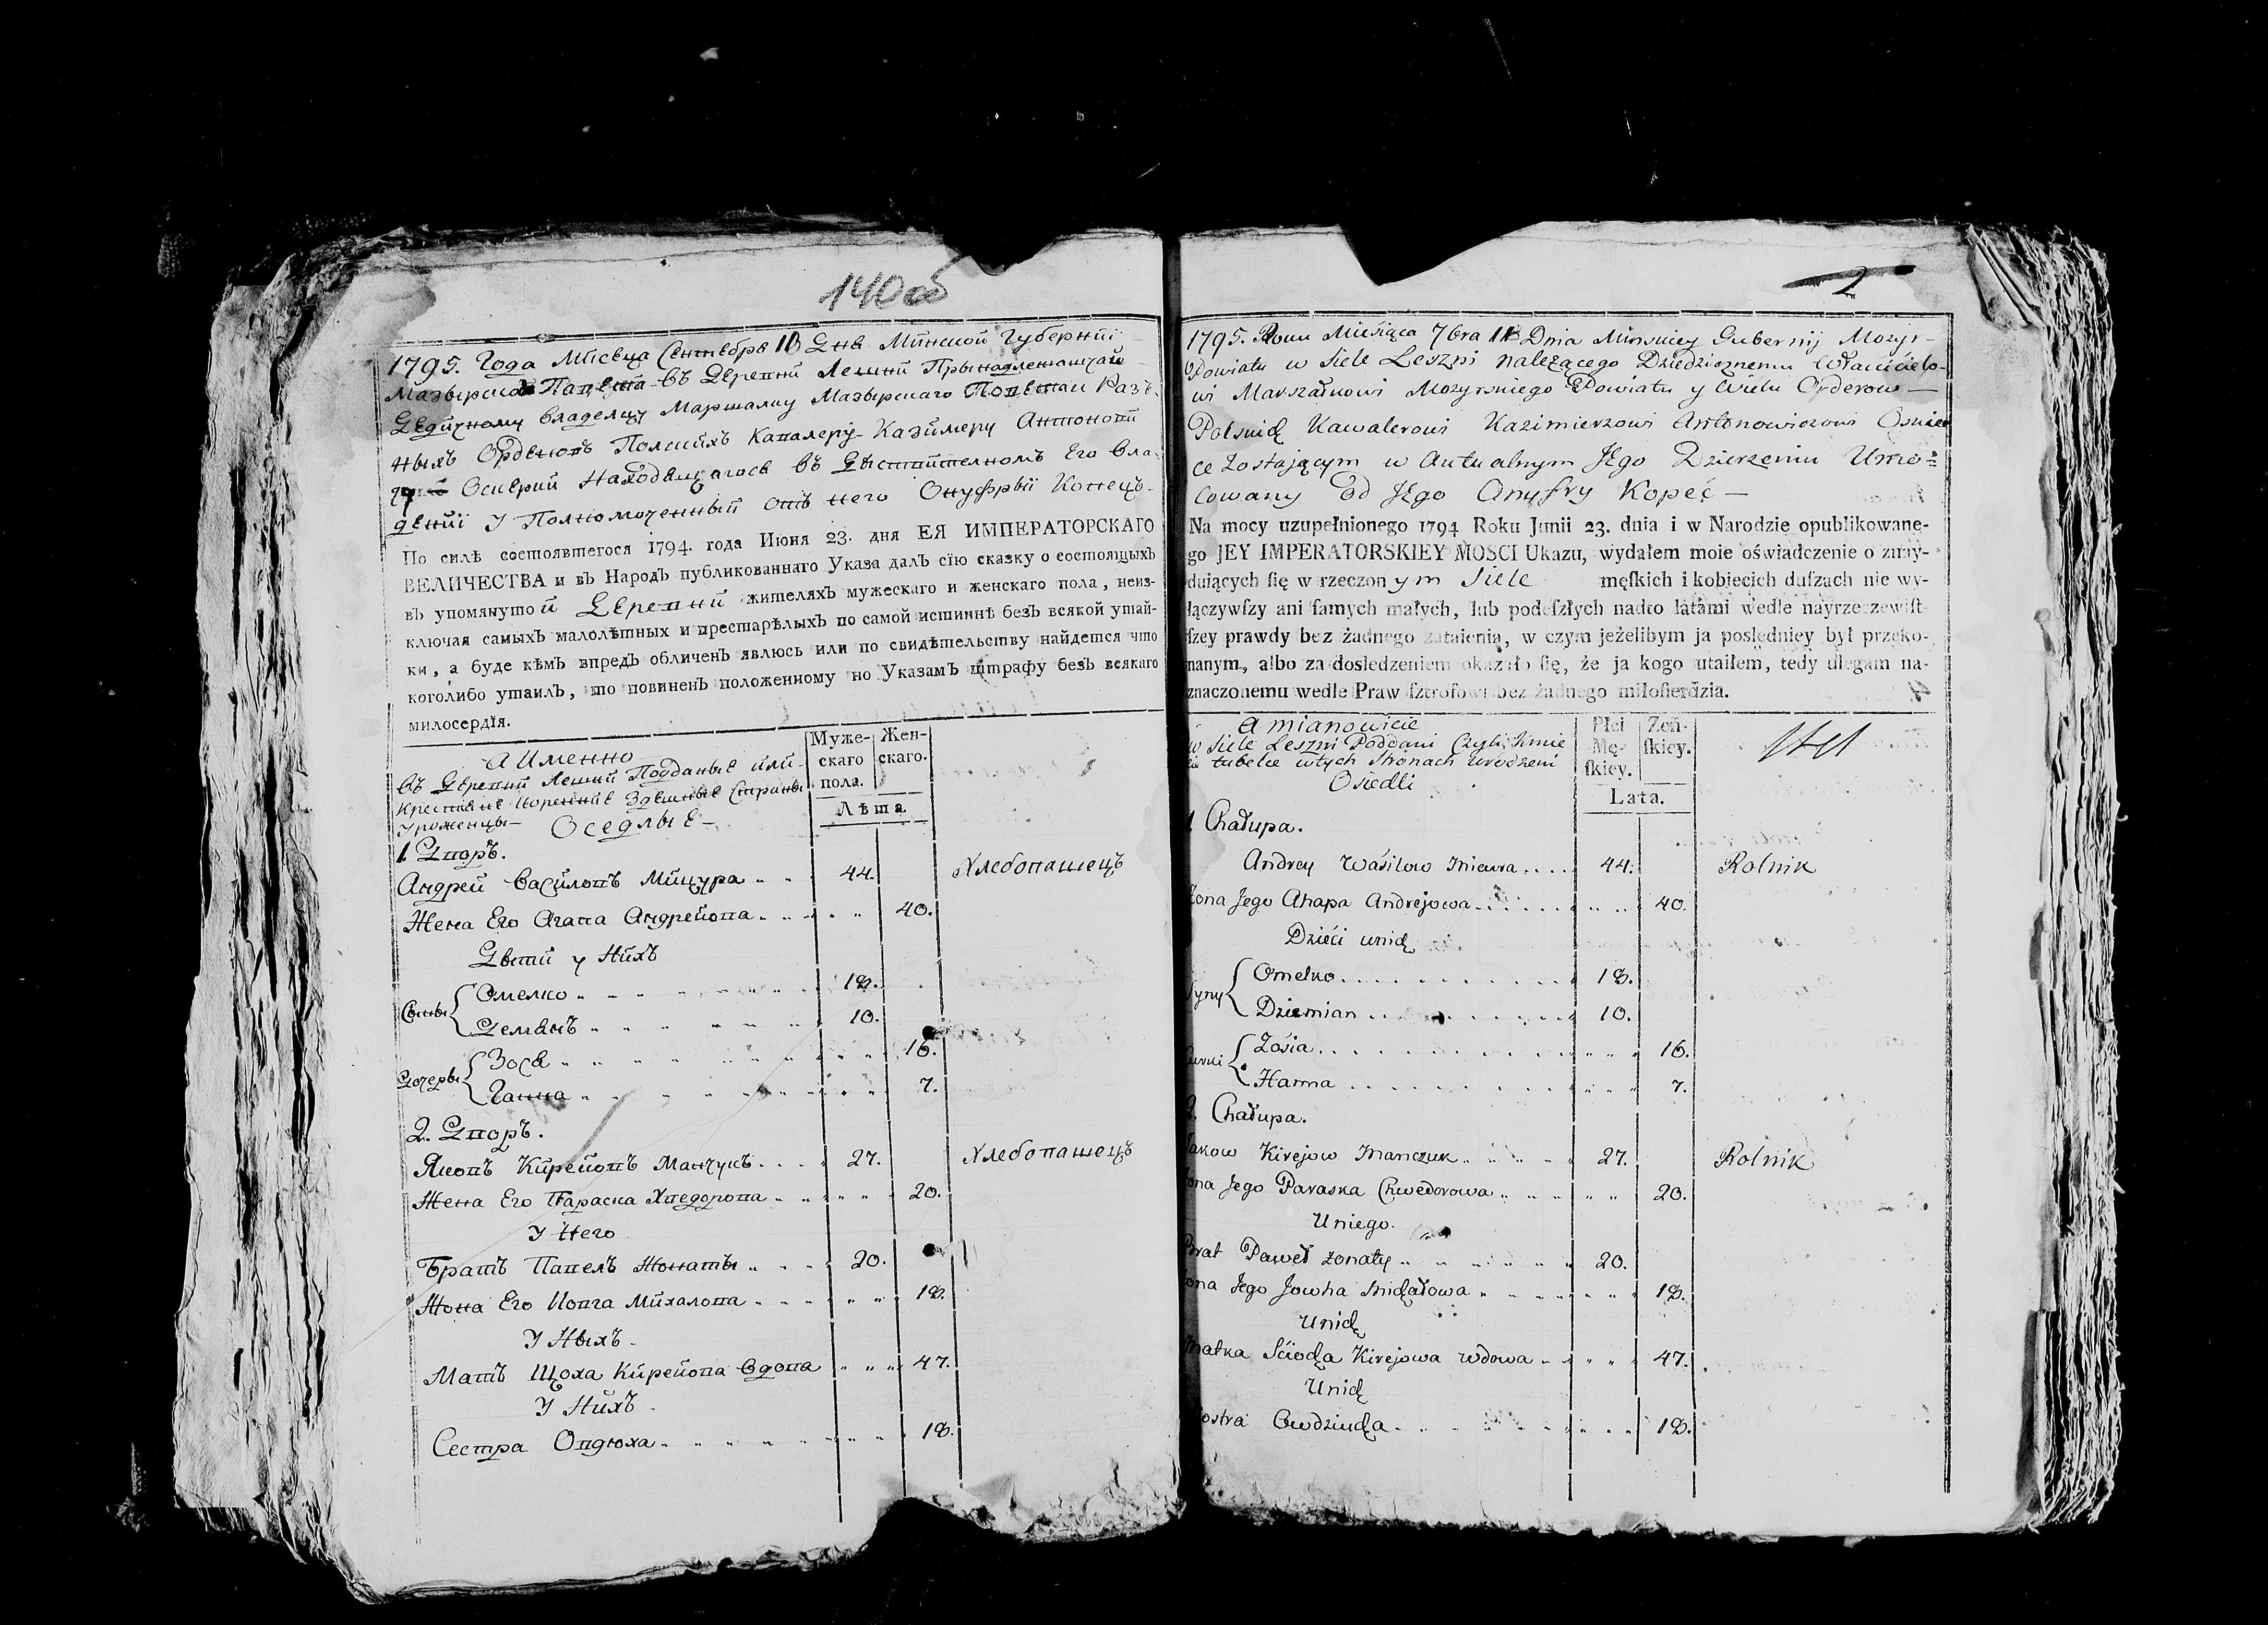 140об
1795. Года Мѣсеца Сентебра 18 Дне Минской Губерніи
Мазырска Павета въ Деревни Лешни Прынадлежашчай
Дедичному Владелцу Маршалку Мазырскаго Поветаи Разъ-
ныхъ Орденовъ Полскихъ Кавалеру Казимеру Антонови
Оскерки Находещагосе въ Действителномъ Его Вла-
дении У Полномоченный отъ него Онуфрый Копець
По силѣ состоявшегося 1794. года Июня 23. дня ЕЯ ИМПЕРАТОРСКАГО
ВЕЛИЧЕСТВА и въ Народъ публикованнаго Указа далъ сїю сказку о состоящыхъ
въ упомянутой Деревни жителяхъ мужескаго и женскаго пола, неиз-
ключая самыхъ малолѣтных и престарѣлыхъ по самой истиннѣ безъ всякой утай-
ки, а буде кѣмъ впредъ обличенъ явлюсь или по свидѣтельству найдется что
коголибо утаилъ, то повиненъ положенному по Указамъ штрафу безъ всякаго
милосердїя.
а Именно
въ Деревни Лешни Подданые или
Крестяне Коренние Здешные Страны
Уроженцы— Оседлые—
Муже-
скаго
пола.
Жен-
скаго.
Лѣта.
1. Дворъ.
Андрей Василовъ Мицура 44. Хлебопашецъ
Жена Его Агапа Андрейова 40.
Дѣти у Нихъ
Сыны Омелко 18.
Демянъ 10.
Дочеры Зося 16.
Ганна 7.
2. Дворъ.
Яковъ Кирейовъ Манчукъ 27. Хлебопашецъ
Жена Его Параска Хведорова 20.
У Него
Братъ Павелъ Жонаты 20.
Жона Его Иовга Михалова 18.
У Ныхъ
Матъ Щоха Кирейова Вдова 47.
У Нихъ
Сестра Овдюха 18.
2
1795. Roku Miesiąca 7bra 18 Dnia Minskiey Gubernij Mozyr-
Powiatu w Siele Leszni należącego Dziedzicznemu Właścicielo-
wi Marszałkowi Mozyrskiego Powiatu y Wielu Orderow—
Polskich Kawalerowi Kazimierzowi Antonowiczowi Oskier
ce zostającym w Aktualnym Jego Dzierzeniu Umo-
cowany od Jego Onufry Kopeć—
Na mocy uzupełnionego 1794 Roku Junii 23. dnia i w Narodzie opublikowane-
go JEY IMPERATORSKIEY MOSCI Ukazu, wydałem moie oświadczenie o znay-
duiących ſię w rzeczonym Siele męſkich i kobiecich duſzach nie wy-
łączywſzy ani ſamych małych, lub podeſzłych nadto latami wedle nayrzeczewiſt-
ſzey prawdy bez żadnego zataienia, w czym jeżelibym ja poslędniey był przeko-
nanym, albo za dosledzeniem okazało ſię, że ja kogo utaiłem, tedy ulegam na-
znaczonemu wedle Praw ſztrofowi bez żadnego miłoſierdzia.
a mianowicie
w Siele Leszni Poddani Czyli Kmie
tubelce w tych Stronach Urodzeni
Osiedli
Płci
Mę-
ſkiey.
Żeń-
ſkiey.
Lata.
1 Chałupa.
Andrey Wasilow Micura 44. Rolnik
Żona Jego Ahapa Andrejowa 40.
Dzieci unich
Syny Omelko 18.
Dziemian 10.
Curki Zosia 16.
Hanna 7.
2. Chałupa.
Jakow Kirejow Manczuk 27. Rolnik
Żona Jego Paraska Chwedorowa 20.
Uniego.
Brat Paweł żonaty 20.
Żona Jego Jowha Michałowa 18.
Unich
Matka Sciocha Kirejowa wdowa 47.
Unich
Siostra Owdziucha 18.